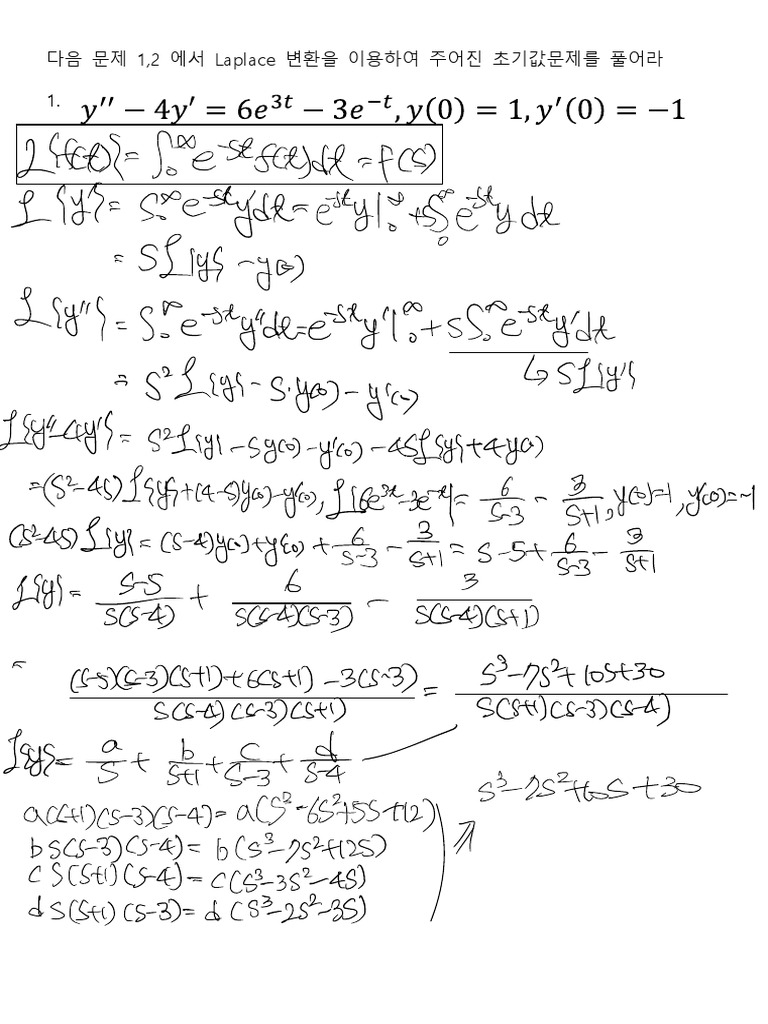 다음 문제 1,2 에서 Laplace 변환을 이용하여 주어진 초기값문제를 풀어라
1. y′′ − 4y′ = 6e^{3t} − 3e^{−t}, y(0) = 1, y′(0) = −1
ℒ{f(t)} = ∫₀^∞ e^{-st} f(t)dt = F(s)
ℒ{y'} = ∫₀^∞ e^{-st} y'dt = e^{-st} y|₀^∞ + s∫₀^∞ e^{-st} y dt
= sℒ{y} - y(0)
ℒ{y''} = ∫₀^∞ e^{-st} y''dt = e^{-st} y'|₀^∞ + s∫₀^∞ e^{-st} y'dt
↳ sℒ{y'}
= s²ℒ{y} - s·y(0) - y'(0)
ℒ{y''-4y'} = s²ℒ{y} - sy(0) - y'(0) - 4sℒ{y} + 4y(0)
= (s²-4s)ℒ{y} + (4-s)y(0) - y'(0), ℒ{6e^{3t}-3e^{-t}} = 6/(s-3) - 3/(s+1), y(0)=1, y'(0)=-1
(s²-4s)ℒ{y} = (s-4)y(0) + y'(0) + 6/(s-3) - 3/(s+1) = s-5 + 6/(s-3) - 3/(s+1)
ℒ{y} = (s-5)/(s(s-4)) + 6/(s(s-4)(s-3)) - 3/(s(s-4)(s+1))
= ((s-5)(s-3)(s+1)+6(s+1)-3(s-3))/(s(s-4)(s-3)(s+1)) = (s³-7s²+10s+30)/(s(s+1)(s-3)(s-4))
ℒ{y} = a/s + b/(s+1) + c/(s-3) + d/(s-4)
s³-7s²+10s+30
a(s+1)(s-3)(s-4) = a(s³-6s²+5s+12)
bs(s-3)(s-4) = b(s³-7s²+12s)
cs(s+1)(s-4) = c(s³-3s²-4s)
ds(s+1)(s-3) = d(s³-2s²-3s)